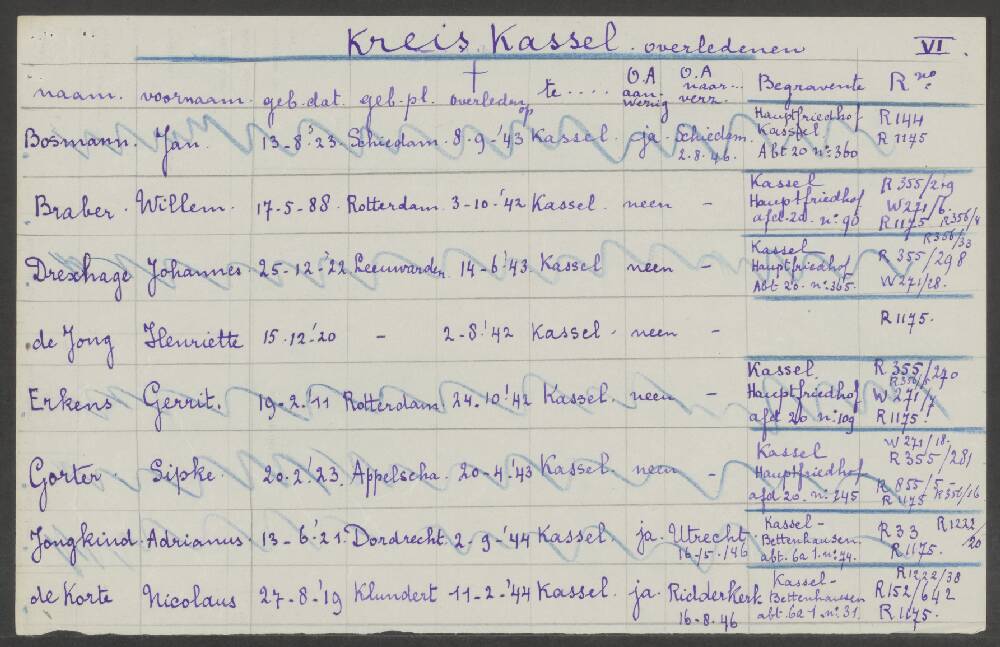 Kreis Kassel. overledenen VI.
naam. voornaam. geb. dat. geb. pl. † overleden op te .... O.A aanwezig O.A naar... verz. Begravente R no.
Bosmann. Jan. 13-8-'23. Schiedam. 8-9-'43 Kassel. ja. Schiedam. 2.8.'46. Hauptfriedhof Kassel Abt 20 no: 360 R144 R1175
Braber. Willem. 17-5-88 Rotterdam. 3-10-'42 Kassel. neen - Kassel Hauptfriedhof afd. 20. no: 90 R 355/219 W271/6. R1175 R356/4
Drexhage Johannes 25-12-'22. Leeuwarden 14-6-'43. Kassel neen - Kassel Hauptfriedhof Abt. 20. no: 365. R356/33 R 355/298 W271/28.
de Jong Henriette 15.12-'20 - 2-8-'42 Kassel. neen - R1175.
Erkens Gerrit. 19-2.'11 Rotterdam. 24.10.'42 Kassel. neen - Kassel. Hauptfriedhof afd 20 no: 109 R 355/240 W271/7 R1175.
Gorter. Sipke. 20.2.'23. Appelscha. 20-4-'43 Kassel. neen - Kassel Hauptfriedhof afd 20. no: 245 W271/18. R355/281 R 855/5 R1175 R356/16
Jongkind. Adrianus. 13-6-'21. Dordrecht. 2-9-'44 Kassel. ja. Utrecht. 16-5-'46 Kassel- Bettenhausen. abt. 6a 1. no: 74. R33 R1222/20 R1175.
de Korte Nicolaus 27-8-'19 Klundert 11-2-'44 Kassel. ja. Ridderkerk 16-8.46 Kassel- Bettenhausen abt. 6a 1. no: 31. R1222/38 R152/642 R1175.